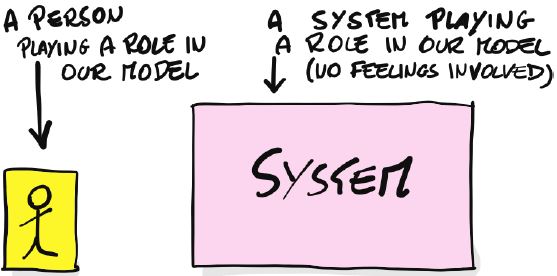 A PERSON
PLAYING A ROLE IN
OUR MODEL
A SYSTEM PLAYING
A ROLE IN OUR MODEL
(NO FEELINGS INVOLVED)
SYSTEM